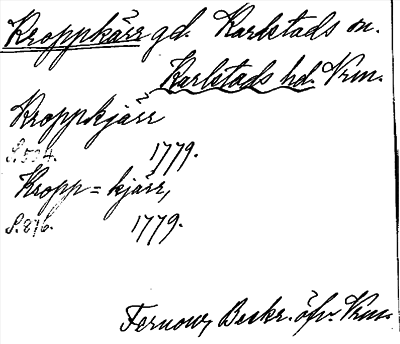 Kroppkärr gd. Karlstads sn.
Karlstads hd. Vrm.
Kroppkjärr
S. 534. 1779.
Kropp=kjärr,
S. 276. 1779.
Fernow, Beskr. öfv. Vrm.